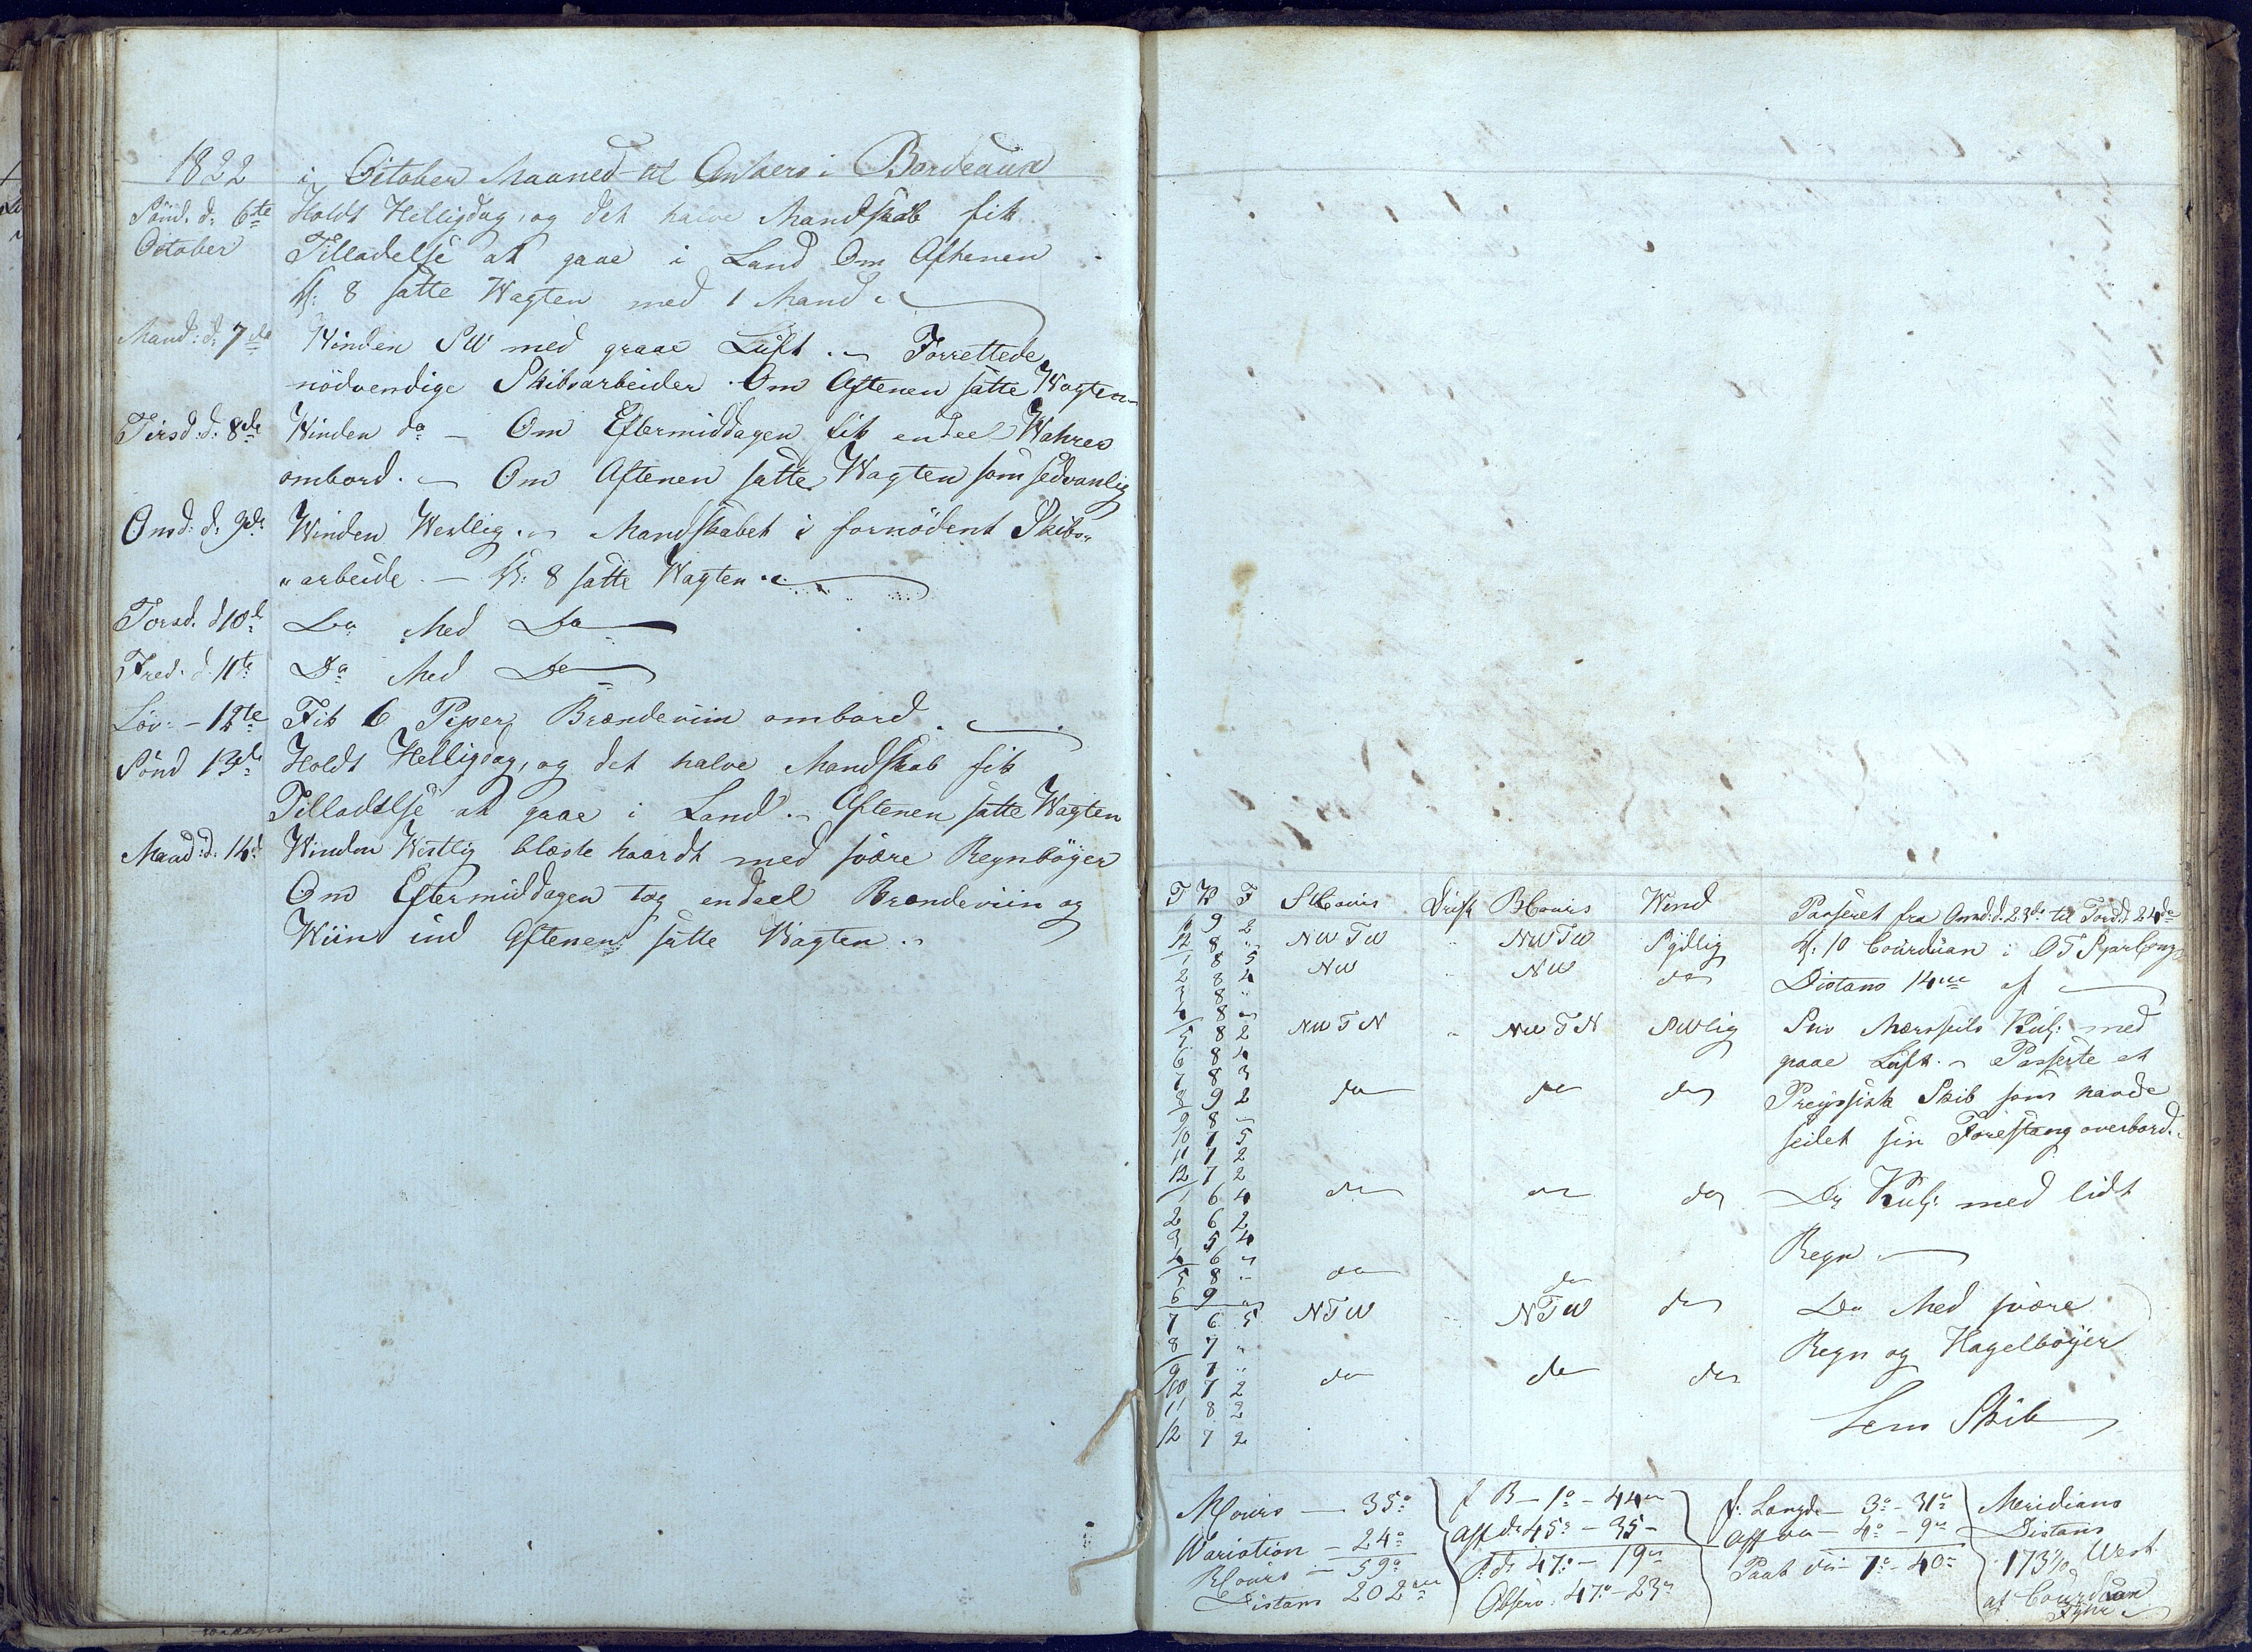 1822 i October Maaned til Ankers i Bordeaux
Sönd. d: 6te Holdt Helligdag, og det halve Mandskab fik
October Tilladelse at gaae i Land Om Aftenen
Kl: 8 satte Wagten med 1 Mand
Mand: d: 7de Winden SW med graae Luft. Forrettede
nödvendige Skibsarbeider. Om Aftenen satte Wagten
Tirsd: d: 8de Winden do – Om Eftermiddagen fik endeel Wahres
ombord. – Om Aftenen satte Wagten som sedvanlig
Onsd: d: 9de Winden Westlig. Mandskabet i fornödent Skibs„
„arbeide. – Kl: 8 satte Wagten
Torsd. d 10de Do Med Do
Fred. d. 11te Do Med Do
Löv: – 12te Fik 6 Piper Brændeviin ombord.
Sönd 13de Holdt Helligdag, og det halve Mandskab fik
Tilladelse at gaae i Land. Aftenen satte Wagten
Mand: d. 14de Winden Westlig blæste haardt med svære Regnböyer
Om Eftermiddagen tog endeel Brændeviin og
Wiin ind Aftenen satte Wagten.
T K F StCours Drift BCours Wind Passeret fra Onsd: d. 23de til Torsd: d 24de
9 2
12 8 „ NWTW „ NWTW Sydlig Kl: 10 Courduan i OTS
1 8 5
2 8 4 NW NW do Distans 14 af
3 8 „
4 8 „
5 8 2 NWTN „ NWTN SWlig Mersseils Kulj: med
6 8 4 graae Luft. Passerte et
7 8 3
8 9 2 do do do Preussisk Skib som havde
9 8 –
10 7 5 seilet sin Forestang overbord.
11 7 2
12 7 2
1 6 4 do do do Do Kulj: med lidt
2 6 2
3 5 4 Regn
4 6 „
5 8 „ do do
6 9 „
7 6 5 NTW NTW do Do Med svære
8 7 „ Regn og Hagelböyer
9 7 „
10 7 2 do do do
11 8 2 Lens Skib
12 7 2
MCours — 35° f B – 1° – 44 f. Langde – 3° – 31 Meridians
Wariation – 24° Aff do 45° – 35 – Aff do – 4° – 9 Distans
BCours – 59° P. do 47° – 19 Paak do – 7° – 40 173 West
Distans 202 Observ. 47° – 23 af Courduan
Fyhr